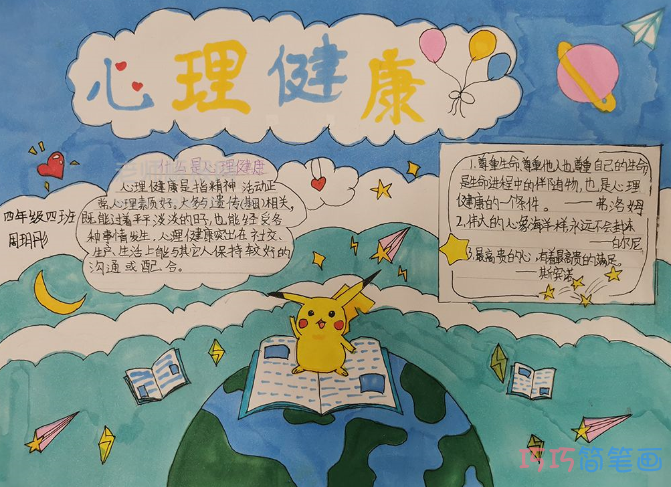 心理健康
什么是心理健康
心理健康是指精神、活动正
常、心理素质好。大多与遗传(基因)相关,
既能过着平平淡淡的日,也能经受各
种事情发生。心理健康突出在社交、
生产、生活上能与其它人保持较好的
沟通或配合。
四年级四班
周玥彤
1.尊重生命、尊重他人也尊重自己的生命,
是生命进程中的伴随物,也是心理
健康的一个条件。——弗洛姆
2.伟大的心像海洋一样,永远不会封冻
——白尔尼
3.最高贵的心,有着最高贵的满足。
——斯宾诺
巧巧简笔画